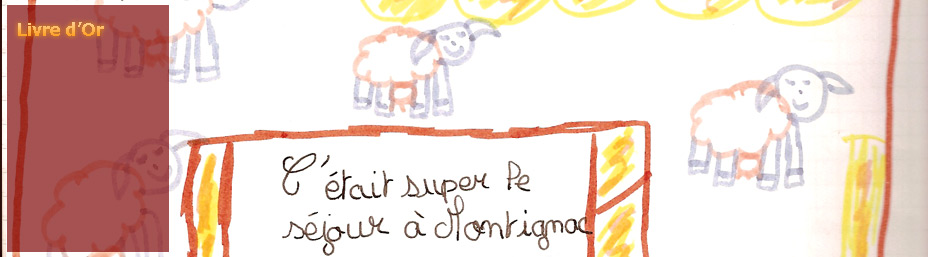 Livre d'Or
C'était super le
séjour à Montignac